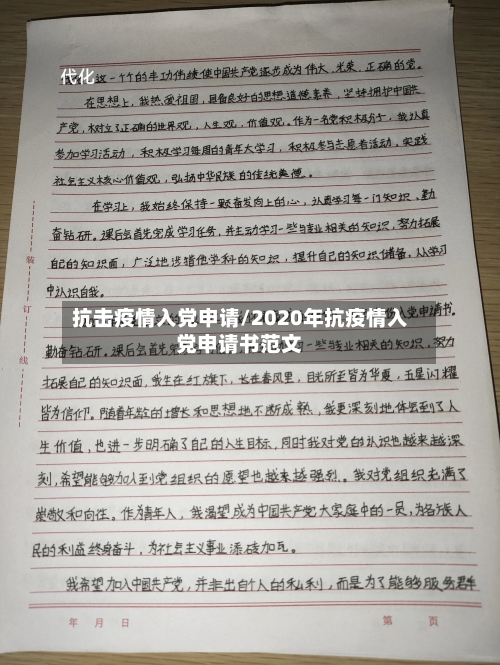 代化
这一个个的丰功伟绩使中国共产党逐步成为伟大、光荣、正确的党。
在思想上，我热爱祖国，具备良好的思想道德素养，坚持拥护中国共
产党，树立了正确的世界观，人生观，价值观。作为一名党积极分子，我认真
参加学习活动，积极学习每周的青年大学习，积极参与志愿者活动，实践
社会主义核心价值观，弘扬中华民族的传统美德。
在学习上，我始终保持一颗奋发向上的心，认真学习每一门知识，勤
奋钻研。课后会首先完成学习任务，并主动学习一些与专业相关的知识，努力拓展
自己的知识面，广泛地涉猎他学科的知识，提升自己的知识储备，从学习
中认识自我。
抗击疫情入党申请/2020年抗疫情入
党申请书范文
入党申请书。
勤奋钻研。课后会首先
一些与专业相关的知识，努力
拓展自己的知识面，我生在红旗下，长在春风里，目光所至皆为华夏，五星闪耀
皆为信仰。随着年龄的增长和思想地不断成熟，我更深刻地体会到了人
生价值，也进一步明确了自己的人生目标，同时我对党的认识也越来越深
刻，希望能够加入到党组织的愿望也越来越强烈。我对党组织充满了
崇敬和向往。作为青年人，我渴望成为中国共产党大家庭中的一员，为各族人
民的利益终身奋斗，为社会主义事业添砖加瓦。
我希望加入中国共产党，并非出自个人的私利，而是为了能够服务群
装
订
线
年 月 日
第 页